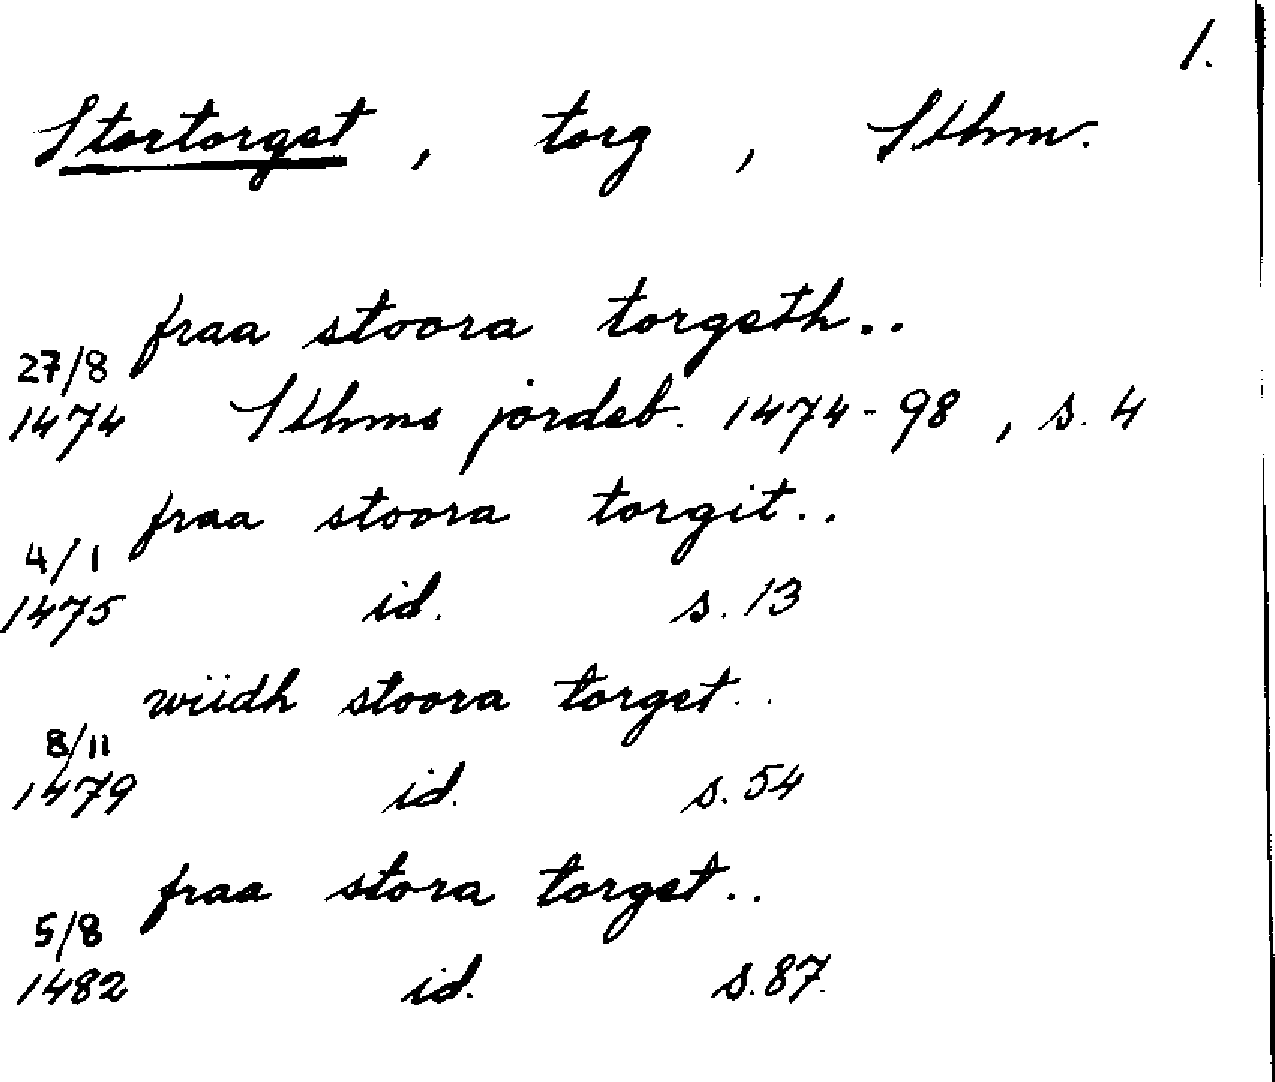 1.
Stortorget, torg, Sthm.
fraa stoora torgeth..
27/8
1474 Sthms jordeb. 1474-98, s. 4
fraa stoora torgit..
4/1
1475 id. s. 13
wiidh stoora torget..
8/11
1479 id. s. 54
fraa stora torget..
5/8
1482 id. s. 87.